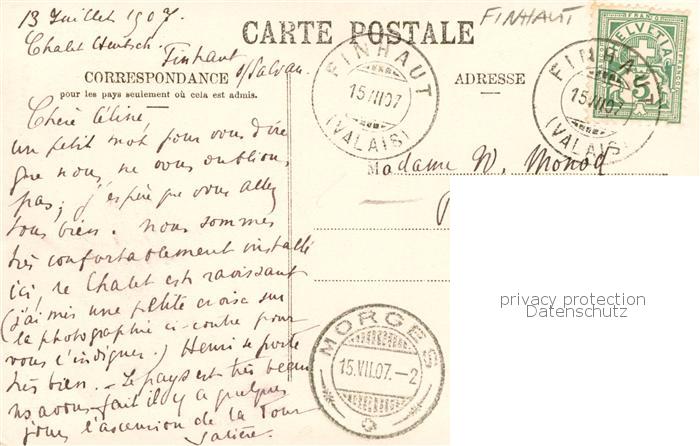 13 Juillet 1907.
Chalet Hentsch.
Finhaut
s/Salvan.
CARTE POSTALE
FINHAUT
CORRESPONDANCE
pour les pays seulement où cela est admis.
ADRESSE
FRANCO
HELVETIA
5
FINHAUT
15.VII.07
(VALAIS)
FINHAUT
15.VII.07
(VALAIS)
Chère Céline,
un petit mot pour vous dire
que nous ne vous oublions
pas; j'espère que vous allez
tous bien. Nous sommes
très confortablement installé
ici, le Chalet est ravissant
(j'ai mis une petite croix sur
la photographie ci-contre pour
vous l'indiquer.) Henri se porte
très bien. - Le pays est très beau
ns avons fait il y a quelques
jours l'ascension de la Tour
Salière.
Madame W. Monod
MORGES
15.VII.07.-2
privacy protection
Datenschutz